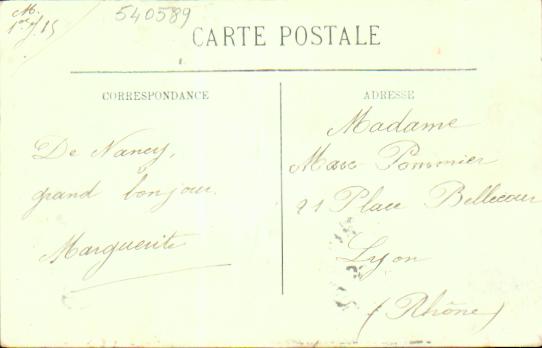 M.
540589
CARTE POSTALE
CORRESPONDANCE
De Nancy,
grand bonjour.
Marguerite
ADRESSE
Madame
Marc Pommier
21 Place Bellecour
Lyon
(Rhône)